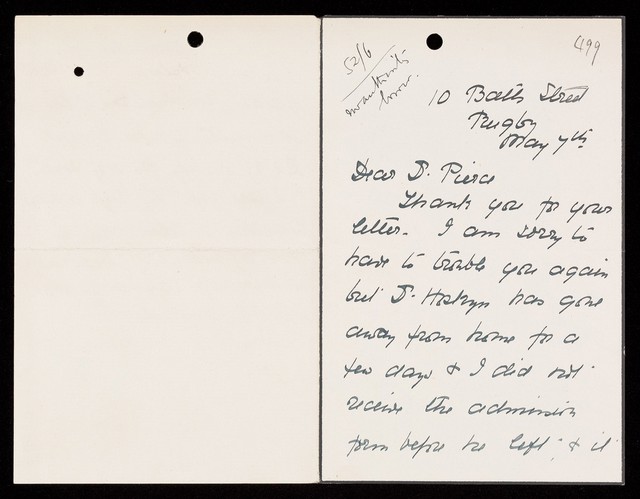 499
52/6
10 Bath Street
Rugby
May 7th
Dear Dr. Pierce
Thank you for your
letter. I am sorry to
have to trouble you again
but Dr. Hoskyn has gone
away from home for a
few days & I did not
receive the admission
form before he left & it